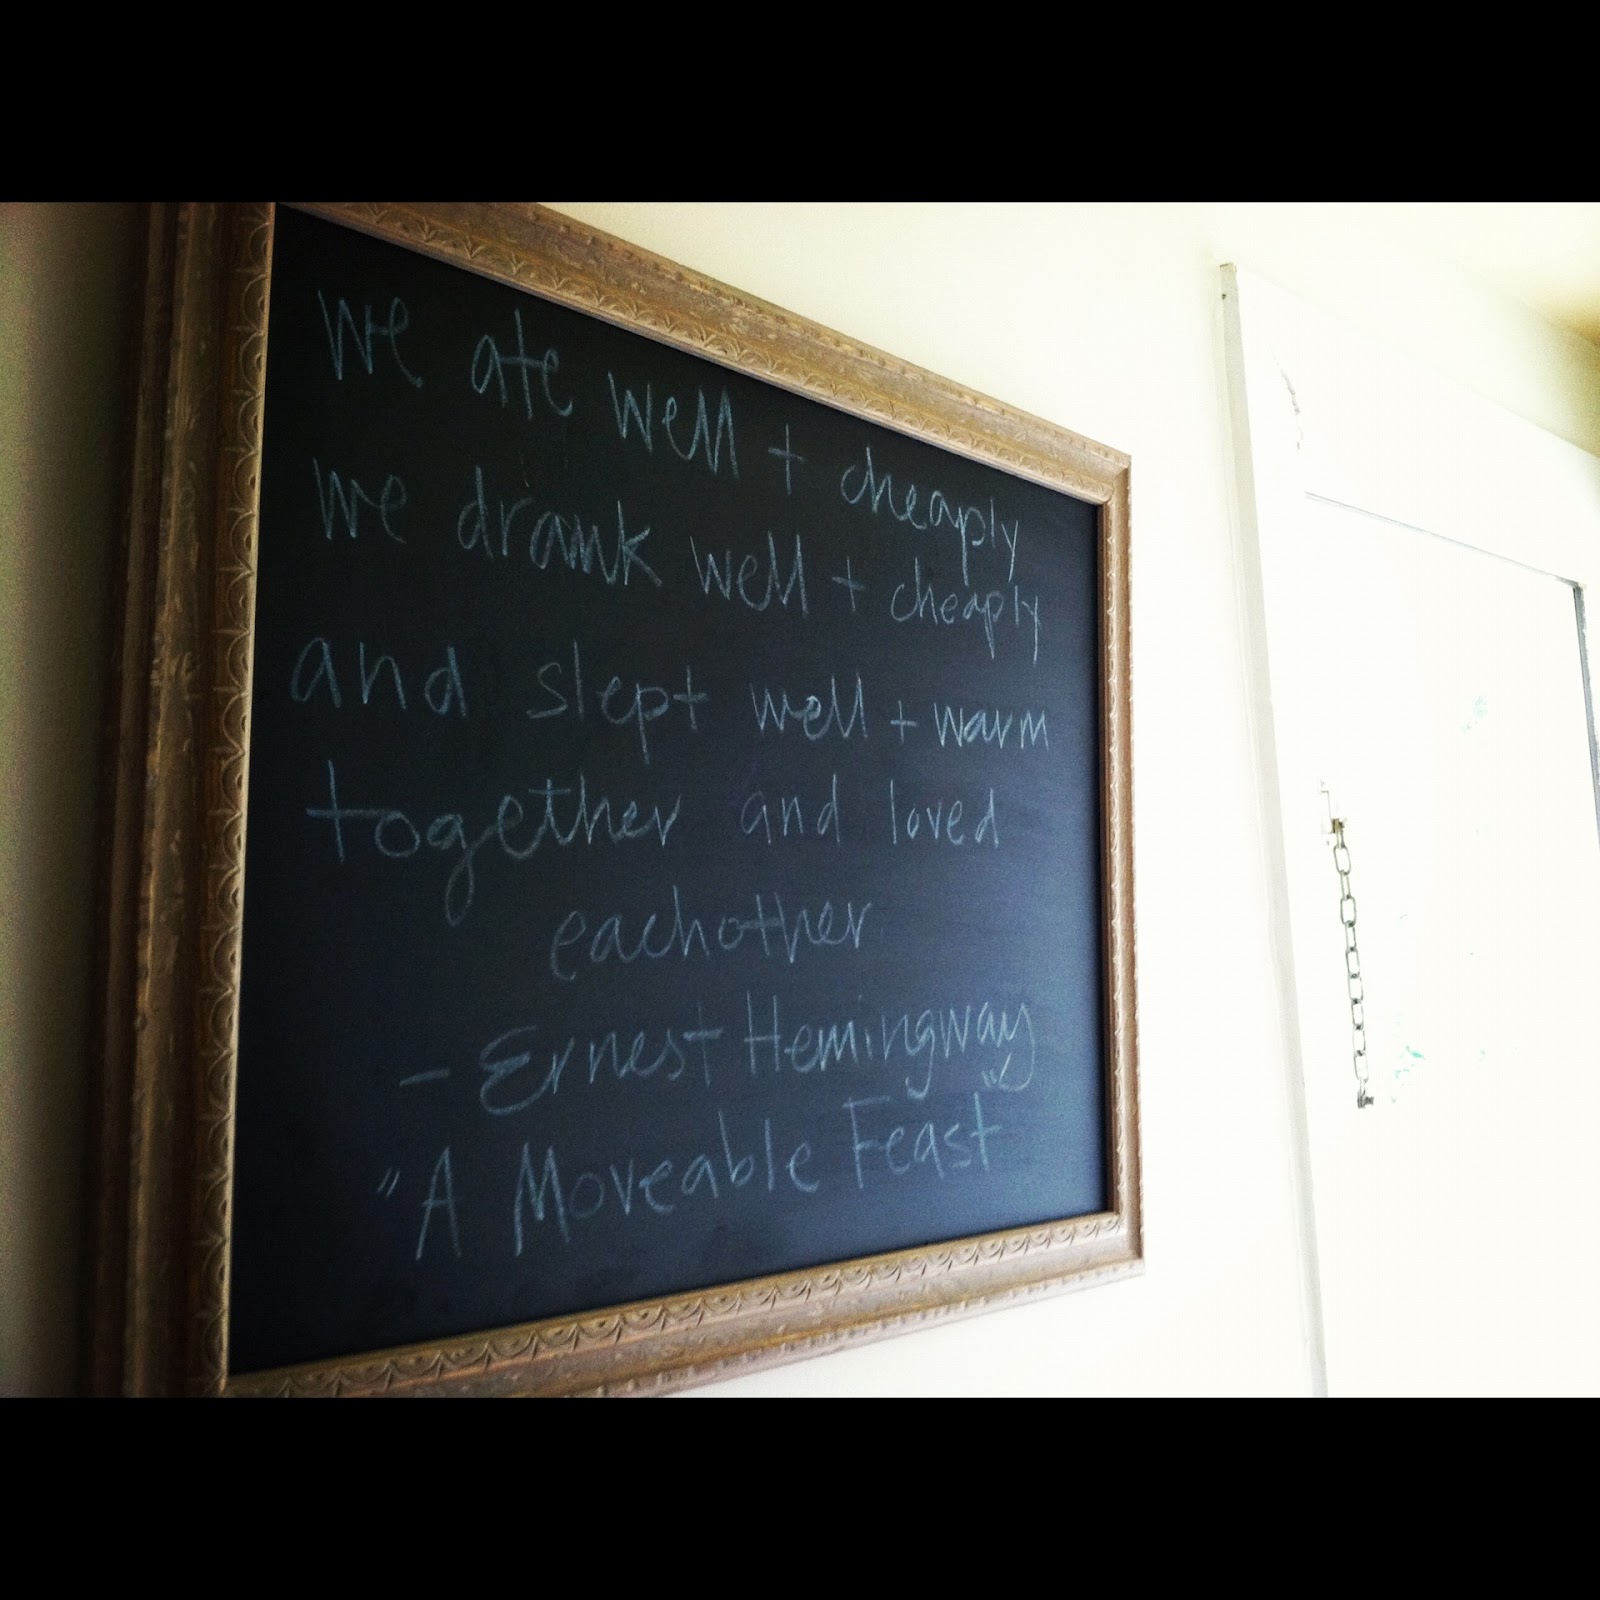 We ate well + cheaply
We drank well + cheaply
and slept well + warm
together and loved
eachother.
- Ernest Hemingway
"A Moveable Feast"